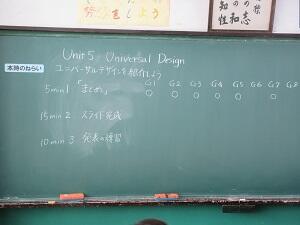 努力をしよう
Unit 5 Universal Design
本時のねらい
ユニバーサルデザインを紹介しよう
G1 G2 G3 G4 G5 G6 G7 G8
5min 1 「まとめ」 ○ ○ ○ ○ ○ ○ ○
15min 2 スライド完成
10min 3 発表の練習